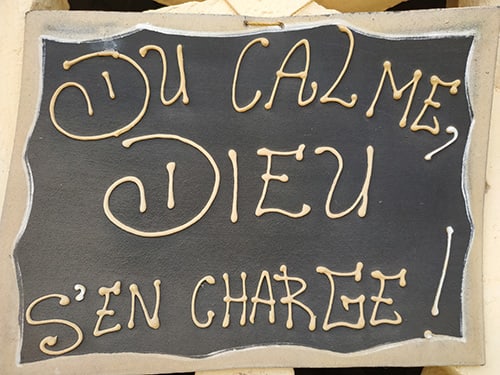 DU CALME,
DIEU
S'EN CHARGE !